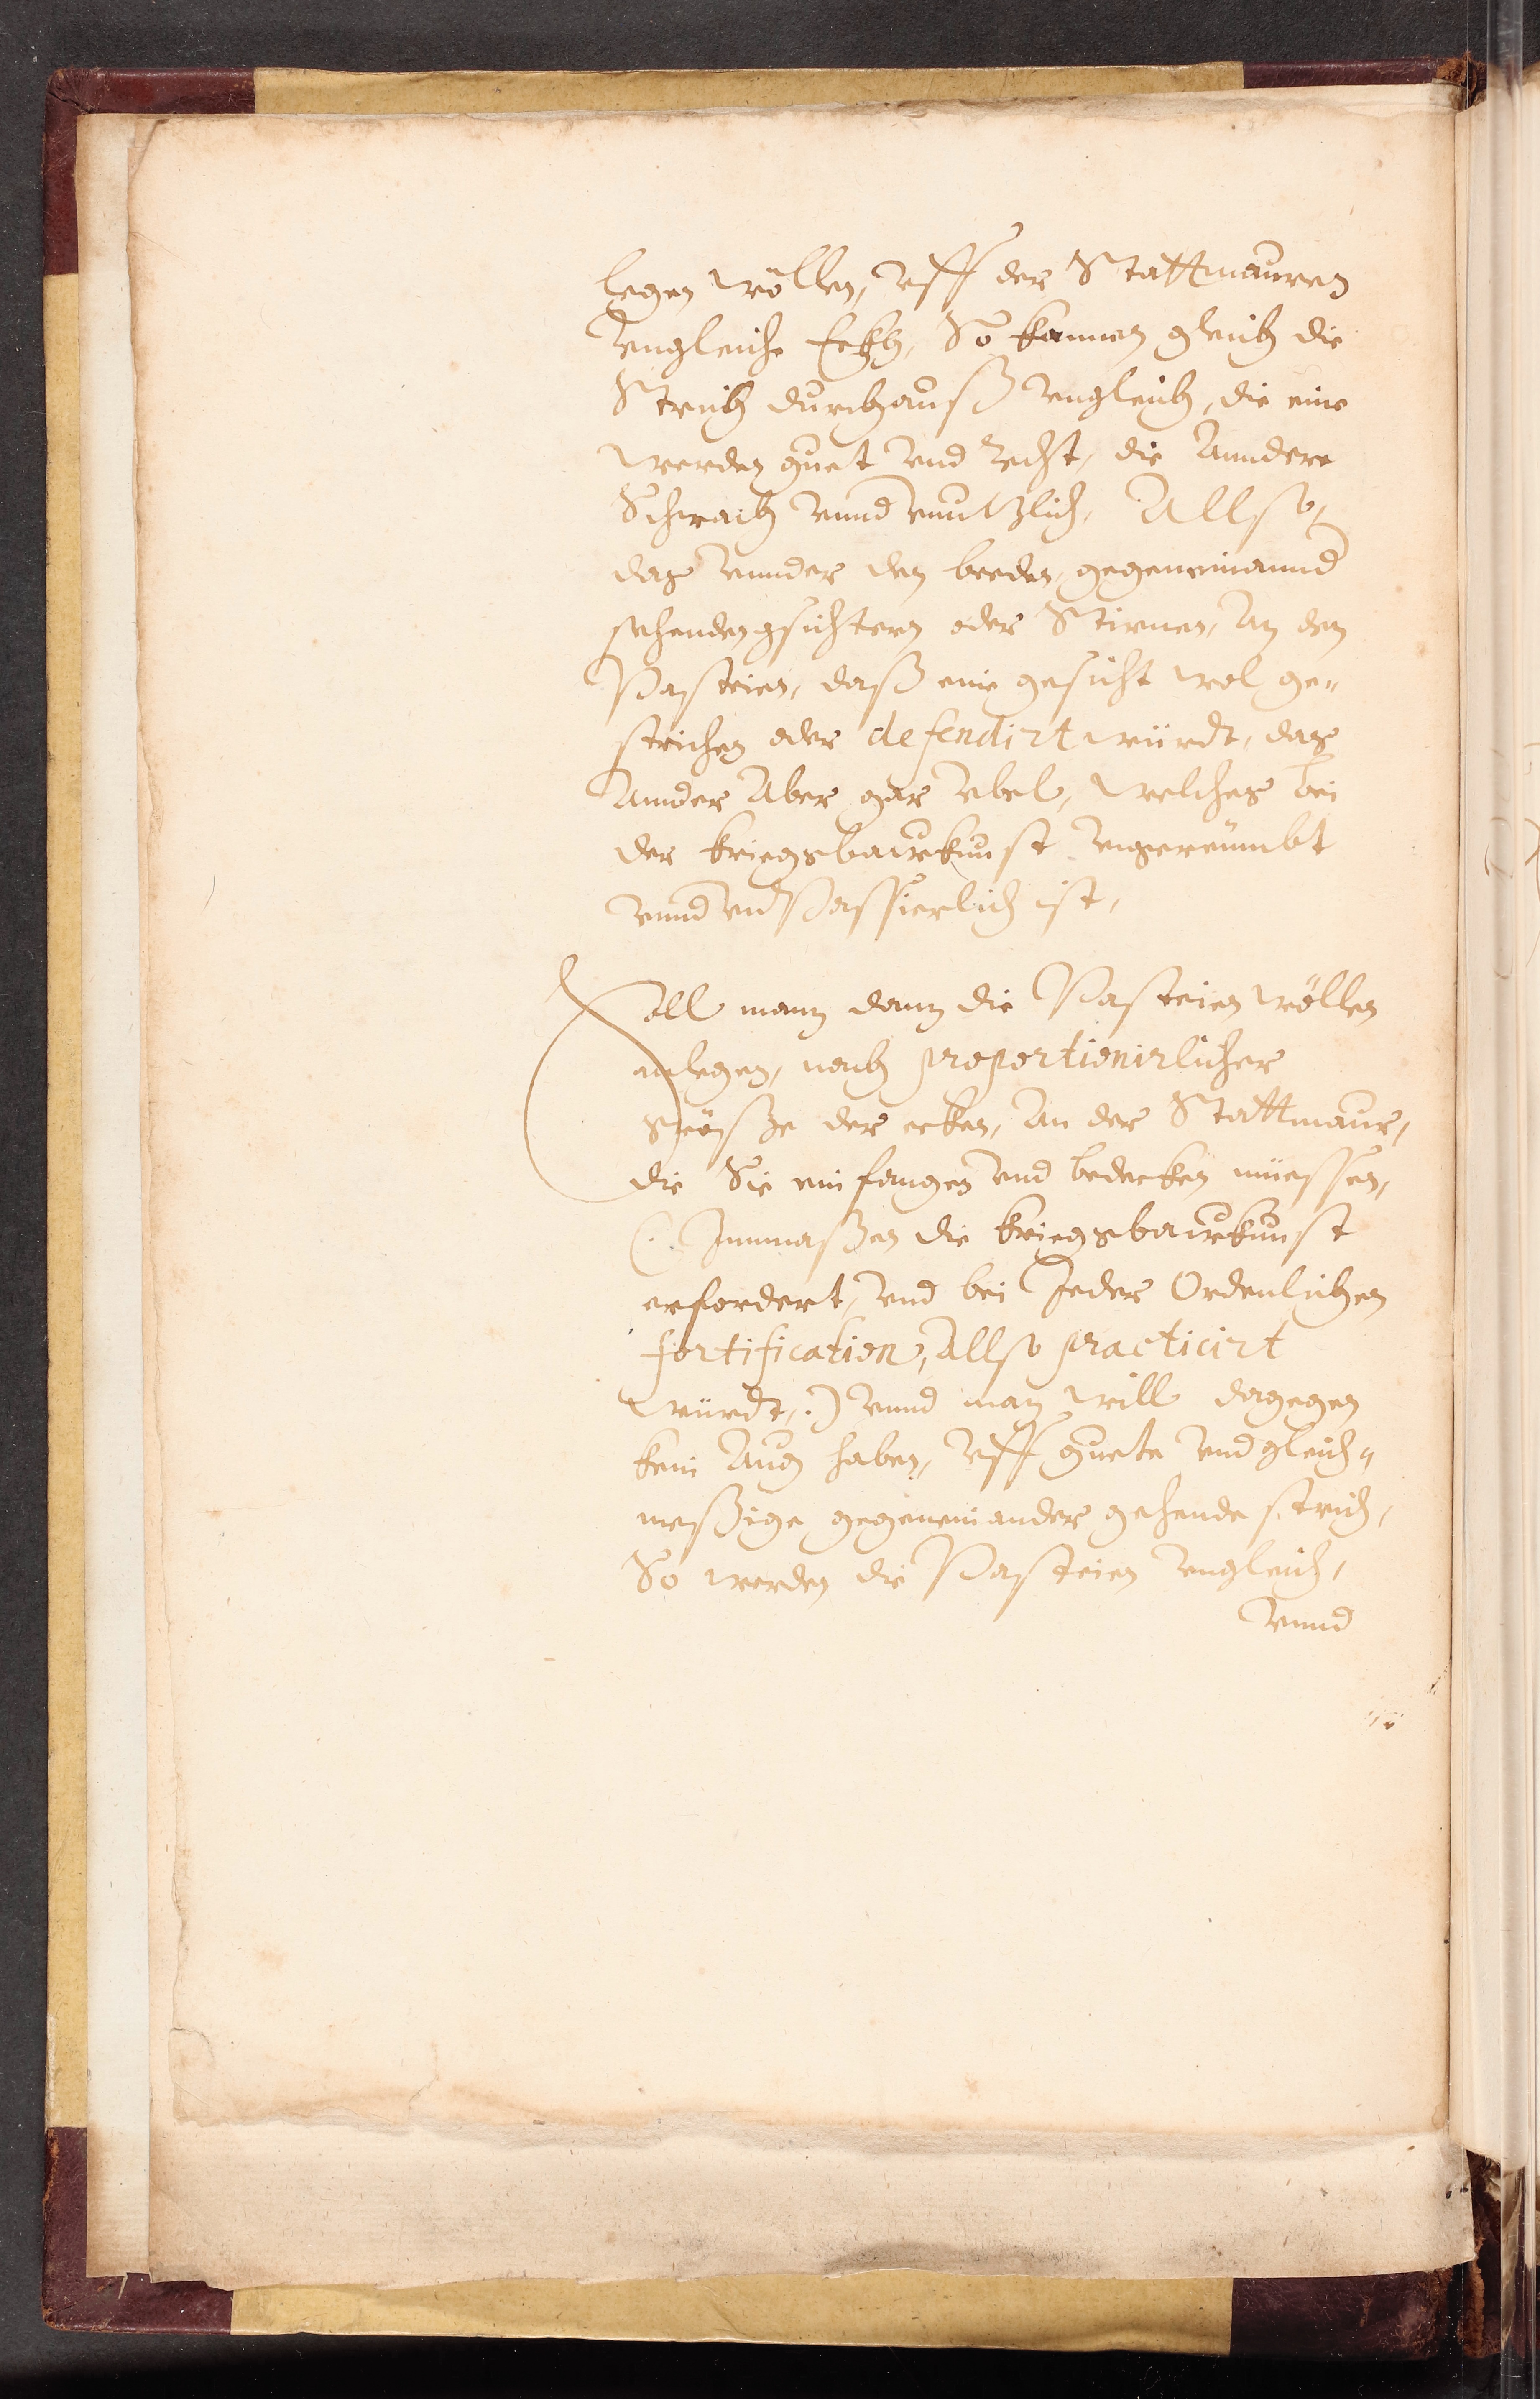 legen wöllen, vff der Stattmauren
vngleiche Eckh, So kommen gleich die
Strich durchauß vngleich, die eine
werden guet vnd recht, die Anndere
Schwach vnnd vnnutzlich, Allso,
das vnnder den beeden, gegeneinannd
sehenden gsichtern oder Stirnen, An den
Pasteien, daß eine gesicht wol ge-
strichen oder defendirt würdt, das
Annder Aber gar vbel, welches bei
der kriegsbauwkunst vngereümbt
vnnd vnPassierlich ist,
Soll mann dann die Pasteien wöllen
anlegen, nach proportionirlicher
grösze der ecken, An der Stattmaur,
die Sie einfangen vnd bedecken müessen,
(: Innmaßen die kriegsbauwkunst
erfordert, vnd bei Jeder Ordenlichen
fortification, Allso practicirt
würdt, :) vnnd man will dagegen
kein Aug haben, vff guete vnd gleich-
meßige gegeneinander gehende strich,
So werden die Pasteien vngleich,
vnnd